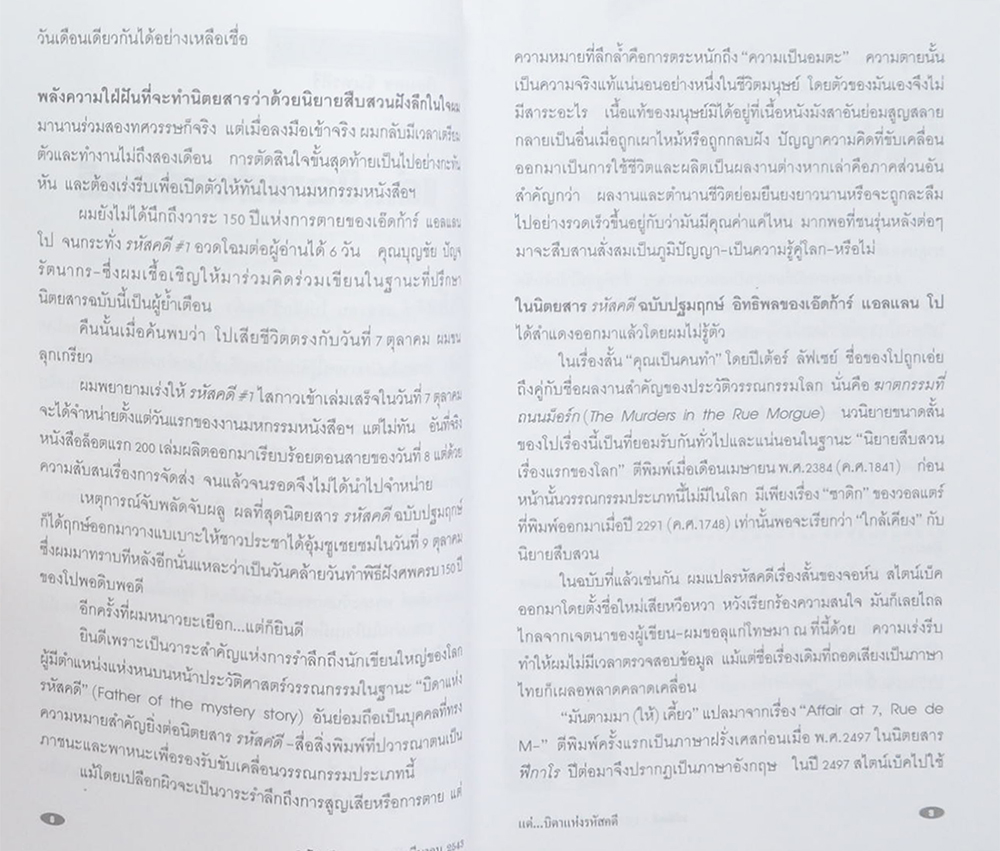 วันเดือนเดียวกันได้อย่างเหลือเชื่อ
พลังความใฝ่ฝันที่จะทำนิตยสารว่าด้วยนิยายสืบสวนฝังลึกในใจผม
มานานร่วมสองทศวรรษก็จริง แต่เมื่อลงมือเข้าจริง ผมกลับมีเวลาเตรียม
ตัวและทำงานไม่ถึงสองเดือน การตัดสินใจขั้นสุดท้ายเป็นไปอย่างกะทัน
หัน และต้องเร่งรีบเพื่อเปิดตัวให้ทันในงานมหกรรมหนังสือฯ
ผมยังไม่ได้นึกถึงวาระ 150 ปีแห่งการตายของเอ๊ดก้าร์ แอลแลน
โป จนกระทั่ง รหัสคดี #1 อวดโฉมต่อผู้อ่านได้ 6 วัน คุณบุญชัย ปัญจ
รัตนากร-ซึ่งผมเชื้อเชิญให้มาร่วมคิดร่วมเขียนในฐานะที่ปรึกษา
นิตยสารฉบับนี้เป็นผู้ย้ำเตือน
คืนนั้นเมื่อค้นพบว่า โปเสียชีวิตตรงกับวันที่ 7 ตุลาคม ผมขน
ลุกเกรียว
ผมพยายามเร่งให้ รหัสคดี #1 ไสกาวเข้าเล่มเสร็จในวันที่ 7 ตุลาคม
จะได้จำหน่ายตั้งแต่วันแรกของงานมหกรรมหนังสือฯ แต่ไม่ทัน อันที่จริง
หนังสือล็อตแรก 200 เล่มผลิตออกมาเรียบร้อยตอนสายของวันที่ 8 แต่ด้วย
ความสับสนเรื่องการจัดส่ง จนแล้วจนรอดจึงไม่ได้นำไปจำหน่าย
เหตุการณ์จับพลัดจับผลู ผลที่สุดนิตยสาร รหัสคดี ฉบับปฐมฤกษ์
ก็ได้ฤกษ์ออกมาวางแบเบาะให้ชาวประชาได้อุ้มชูเชยชมในวันที่ 9 ตุลาคม
ซึ่งผมมาทราบทีหลังอีกนั่นแหละว่าเป็นวันคล้ายวันทำพิธีฝังศพครบ 150 ปี
ของโปพอดิบพอดี
อีกครั้งที่ผมหนาวยะเยือก...แต่ก็ยินดี
ยินดีเพราะเป็นวาระสำคัญแห่งการรำลึกถึงนักเขียนใหญ่ของโลก
ผู้มีตำแหน่งแห่งหนบนหน้าประวัติศาสตร์วรรณกรรมในฐานะ "บิดาแห่ง
รหัสคดี" (Father of the mystery story) อันย่อมถือเป็นบุคคลที่ทรง
ความหมายสำคัญยิ่งต่อนิตยสาร รหัสคดี-สื่อสิ่งพิมพ์ที่ปวารณาตนเป็น
ภาชนะและพาหนะเพื่อรองรับขับเคลื่อนวรรณกรรมประเภทนี้
แม้โดยเปลือกผิวจะเป็นวาระรำลึกถึงการสูญเสียหรือการตาย แต่
๘
2543
ความหมายที่ลึกล้ำคือการตระหนักถึง "ความเป็นอมตะ" ความตายนั้น
เป็นความจริงแท้แน่นอนอย่างหนึ่งในชีวิตมนุษย์ โดยตัวของมันเองจึงไม่
มีสาระอะไร เนื้อแท้ของมนุษย์มิได้อยู่ที่เนื้อหนังมังสาอันย่อมสูญสลาย
กลายเป็นอื่นเมื่อถูกเผาไหม้หรือถูกกลบฝัง ปัญญาความคิดที่ขับเคลื่อน
ออกมาเป็นการใช้ชีวิตและผลิตเป็นผลงานต่างหากเล่าคือภาคส่วนอัน
สำคัญกว่า ผลงานและตำนานชีวิตย่อมยืนยงยาวนานหรือจะถูกละลืม
ไปอย่างรวดเร็วขึ้นอยู่กับว่ามันมีคุณค่าแค่ไหน มากพอที่ชนรุ่นหลังต่อๆ
มาจะสืบสานสั่งสมเป็นภูมิปัญญา-เป็นความรู้คู่โลก-หรือไม่
ในนิตยสาร รหัสคดี ฉบับปฐมฤกษ์ อิทธิพลของเอ๊ดก้าร์ แอลแลน โป
ได้สำแดงออกมาแล้วโดยผมไม่รู้ตัว
ในเรื่องสั้น "คุณเป็นคนทำ" โดยปีเต้อร์ ลัฟเซย์ ชื่อของโปถูกเอ่ย
ถึงคู่กับชื่อผลงานสำคัญของประวัติวรรณกรรมโลก นั่นคือ ฆาตกรรมที่
ถนนม็อร์ก (The Murders in the Rue Morgue) นวนิยายขนาดสั้น
ของโปเรื่องนี้เป็นที่ยอมรับกันทั่วไปและแน่นอนในฐานะ "นิยายสืบสวน
เรื่องแรกของโลก" ตีพิมพ์เมื่อเดือนเมษายน พ.ศ.2384 (ค.ศ.1841) ก่อน
หน้านั้นวรรณกรรมประเภทนี้ไม่มีในโลก มีเพียงเรื่อง "ซาดิก" ของวอลแตร์
ที่พิมพ์ออกมาเมื่อปี 2291 (ค.ศ.1748) เท่านั้นพอจะเรียกว่า "ใกล้เคียง" กับ
นิยายสืบสวน
ในฉบับที่แล้วเช่นกัน ผมแปลรหัสคดีเรื่องสั้นของจอห์น สไตน์เบ็ค
ออกมาโดยตั้งชื่อใหม่เสียหวือหวา หวังเรียกร้องความสนใจ มันก็เลยไถล
ไกลจากเจตนาของผู้เขียน-ผมขอลุแก่โทษมา ณ ที่นี้ด้วย ความเร่งรีบ
ทำให้ผมไม่มีเวลาตรวจสอบข้อมูล แม้แต่ชื่อเรื่องเดิมที่ถอดเสียงเป็นภาษา
ไทยก็เผลอพลาดคลาดเคลื่อน
"มันตามมา (ให้) เคี้ยว" แปลมาจากเรื่อง "Affair at 7, Rue de
M-" ตีพิมพ์ครั้งแรกเป็นภาษาฝรั่งเศสก่อนเมื่อ พ.ศ.2497 ในนิตยสาร
ฟีกาโร ปีต่อมาจึงปรากฏเป็นภาษาอังกฤษ ในปี 2497 สไตน์เบ็คไปใช้
แด่...บิดาแห่งรหัสคดี
๑